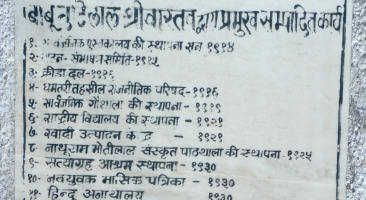 बाबू छोटेलाल श्रीवास्तव द्वारा प्रमुख सम्पादित कार्य
१- सार्वजनिक पुस्तकालय की स्थापना सन १९१४
संभाषण समिति- १९१५
३- क्रीडा दल- १९१६
४- धमतरी तहसील राजनीतिक परिषद- १९१६
५- सार्वजनिक गौशाला की स्थापना - १९१९
६- राष्ट्रीय विद्यालय की स्थापना - १९२१
७- खादी उत्पादन के - १९२१
८- नाथूराम मोतीलाल संस्कृत पाठशाला की स्थापना- १९२५
९- सत्याग्रह आश्रम स्थापना - १९३०
१०- नवयुवक मासिक पत्रिका - १९३०
११- हिन्दू अनाथालय १९३०